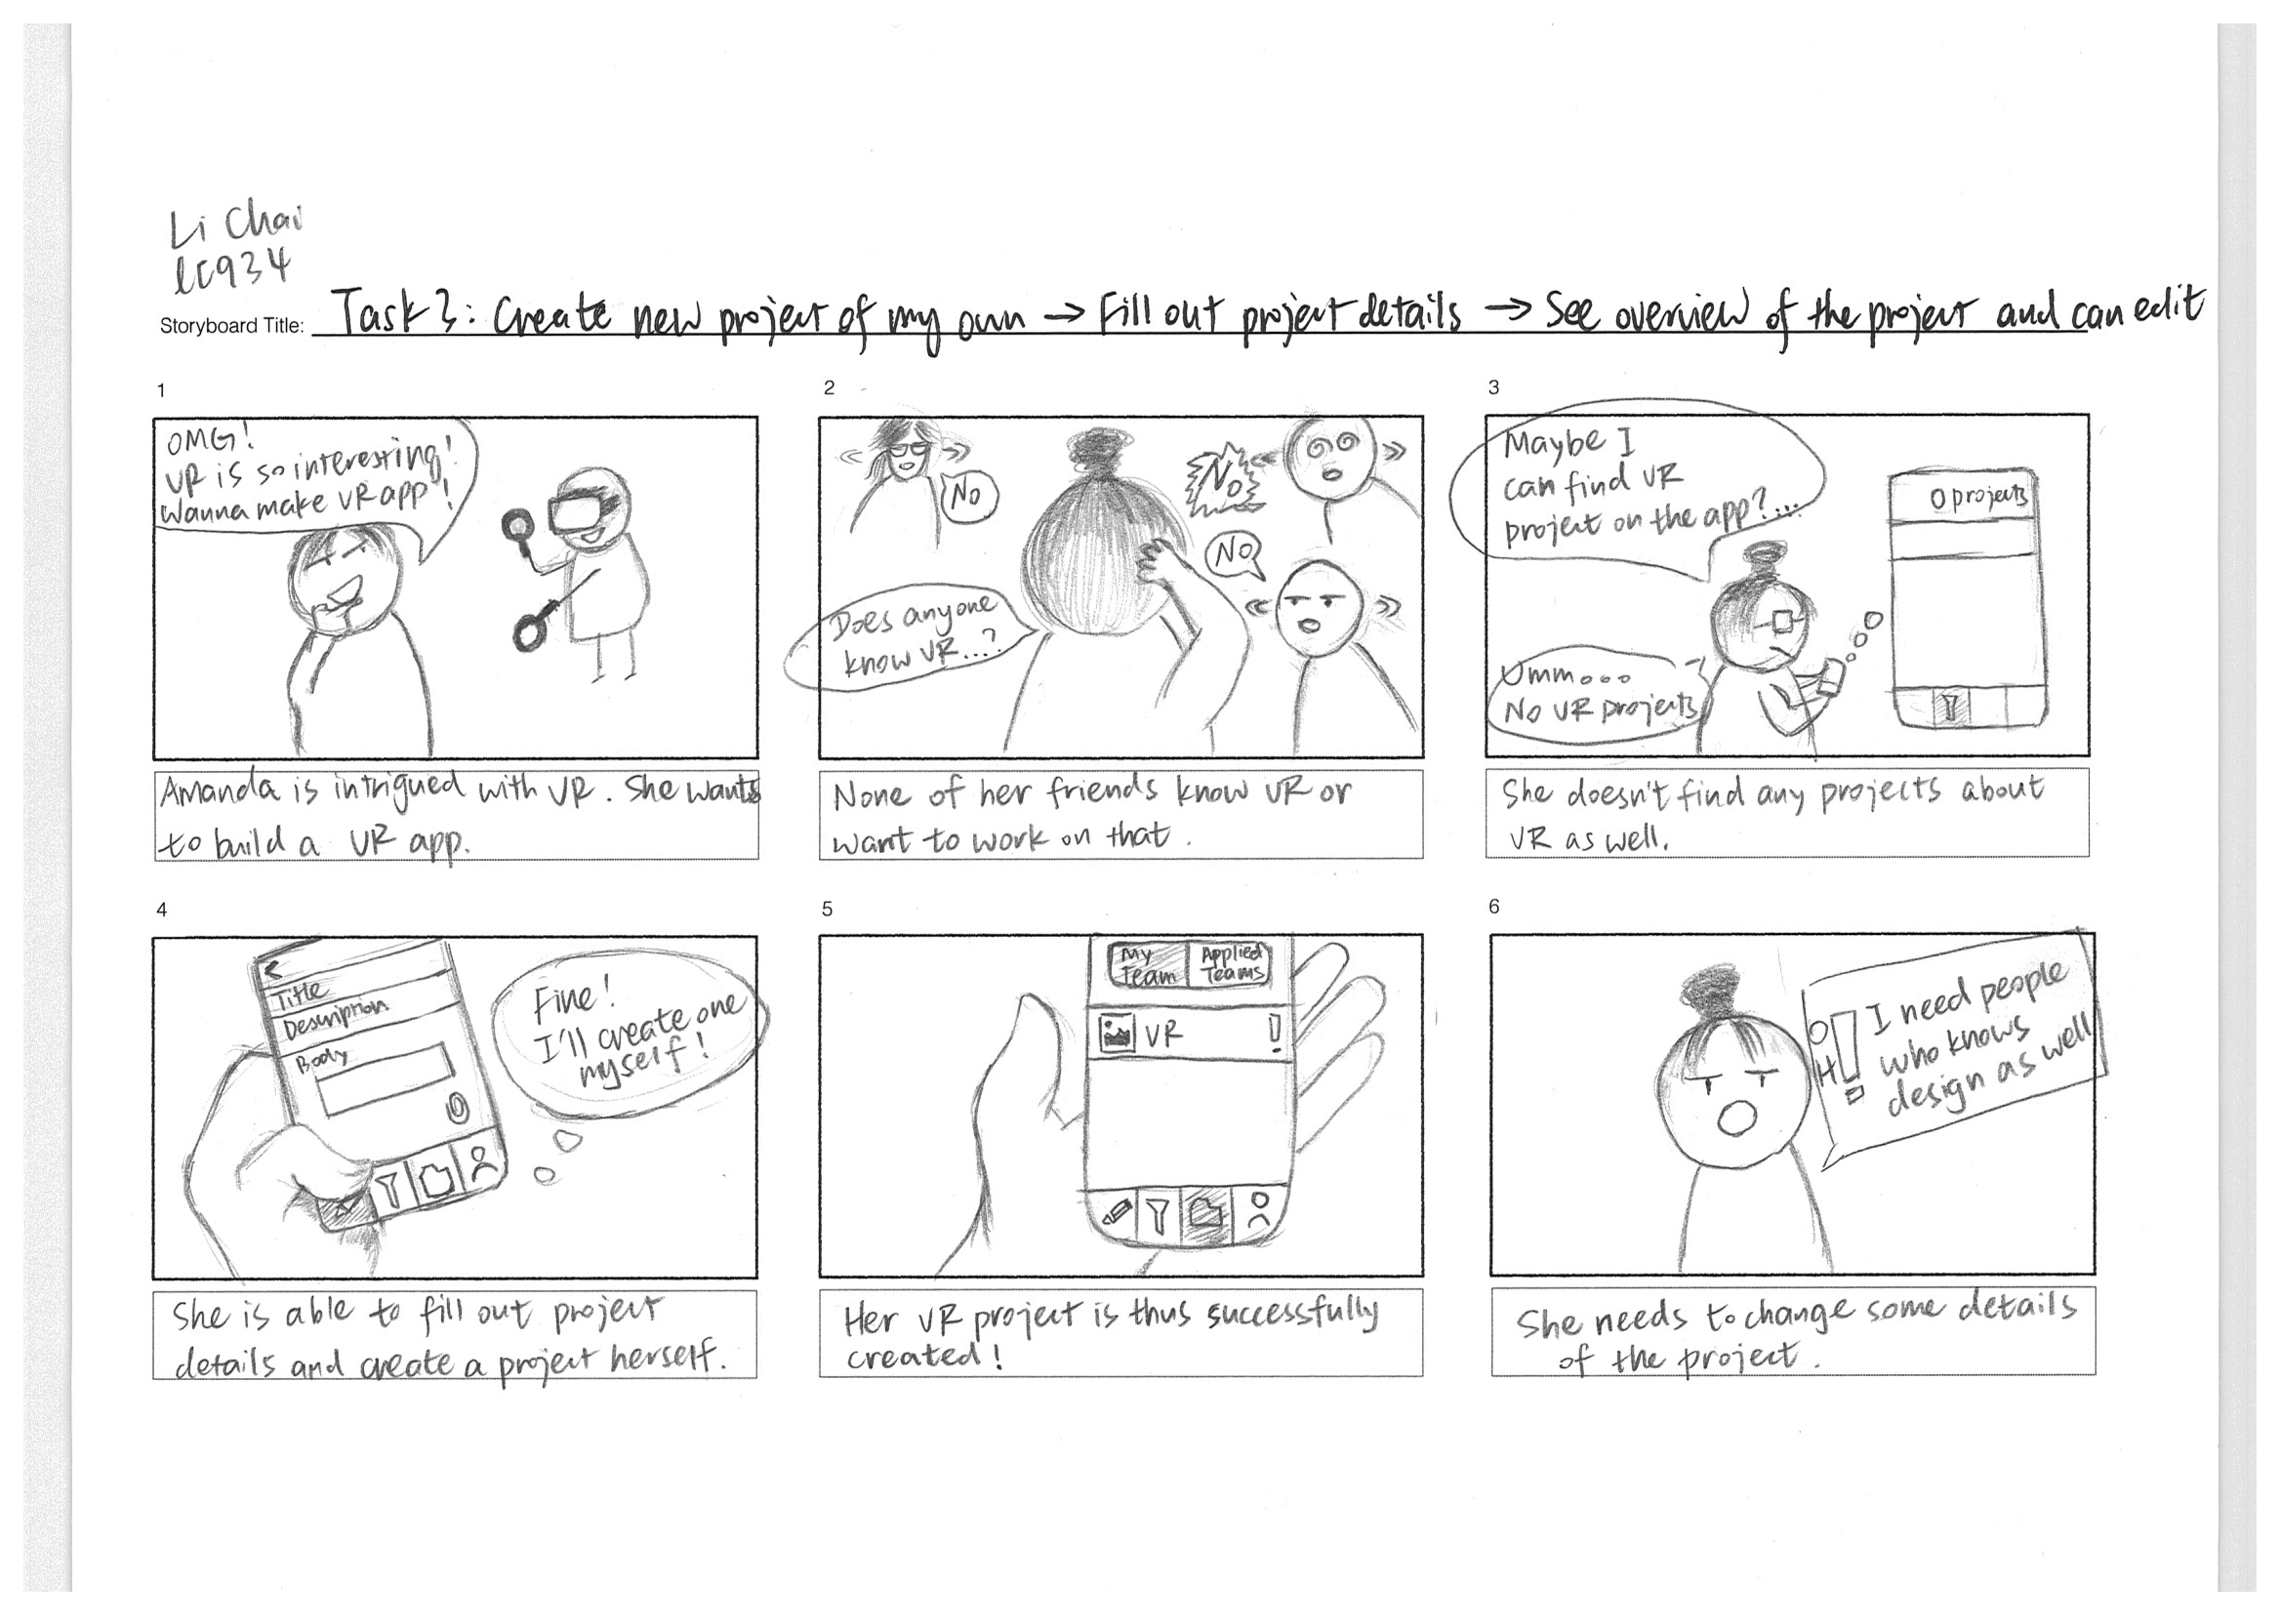 Li Chai
lc934
Storyboard Title: Task 3: Create new project of my own → Fill out project details → See overview of the project and can edit
1
OMG!
VR is so interesting!
Wanna make VR app!
Amanda is intrigued with VR. She wants
to build a VR app.
2
No
No
No
Does anyone
know VR...?
None of her friends know VR or
want to work on that.
3
Maybe I
can find VR
project on the app?...
0 projects
Umm...
No VR projects
She doesn't find any projects about
VR as well.
4
Title
Description
Body
Fine!
I'll create one
myself!
She is able to fill out project
details and create a project herself.
5
My
Team
Applied
Teams
VR !
Her VR project is thus successfully
created!
6
OH!
I need people
who knows
design as well
She needs to change some details
of the project.